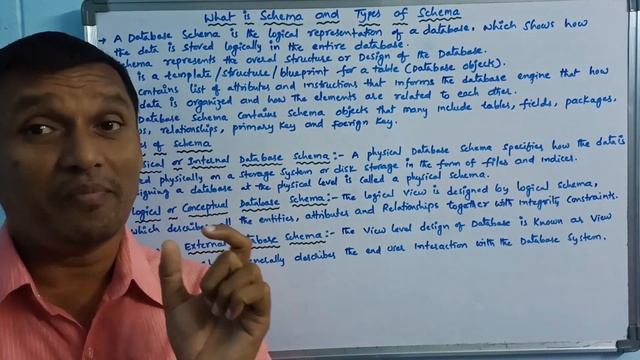 What is Schema and Types of Schema
→ A Database Schema is the logical representation of a database, which shows how
the data is stored logically in the entire database.
schema represents the overal structure or Design of the Database.
is a template/structure/blueprint for a table (Database objects).
contains list of attributes and instructions that informs the database engine that how
data is organized and how the elements are related to each other.
Database schema contains schema objects that many include tables, fields, packages,
relationships, primary key and foerign key.
of Schema
or Internal Database Schema:- A physical Database schema specifies how the data is
physically on a storage system or disk storage in the form of files and indices.
a database at the physical level is called a physical schema.
or Conceptual Database Schema:- the logical view is designed by logical schema,
which all the entities, attributes and Relationships together with integrity constraints.
External Schema:- the view level design of Database is known as view
describes the end user Interaction with the Database System.